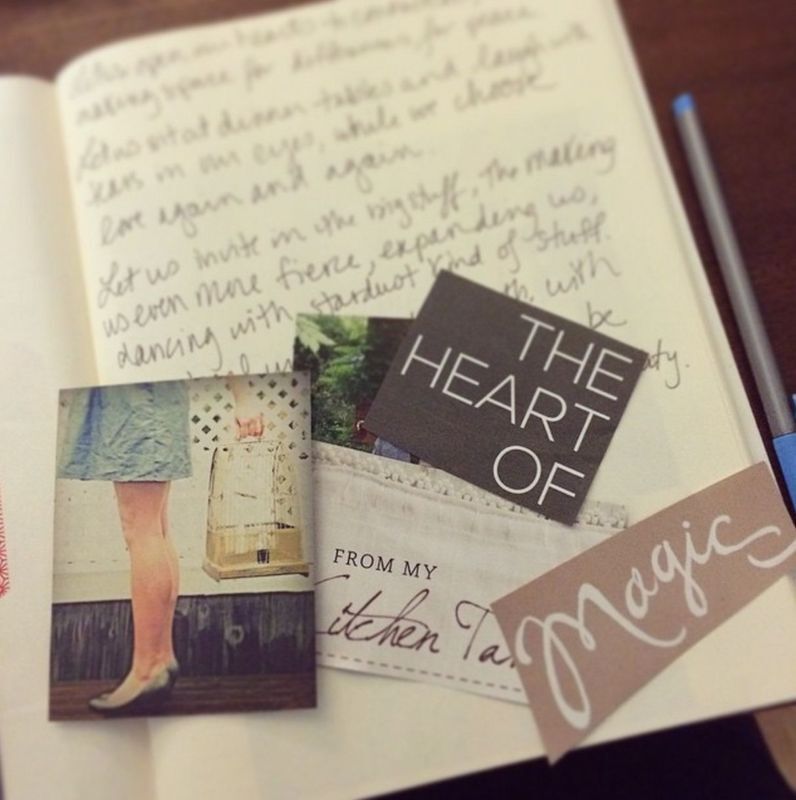 making space for differences, for peace
Let us sit at dinner tables and laugh with
tears in our eyes, while we choose
love again and again.
Let us invite in the big stuff, the making
us even more fierce, expanding us,
dancing with stardust kind of stuff.
with
be
THE
HEART
OF
FROM MY
Kitchen
Magic